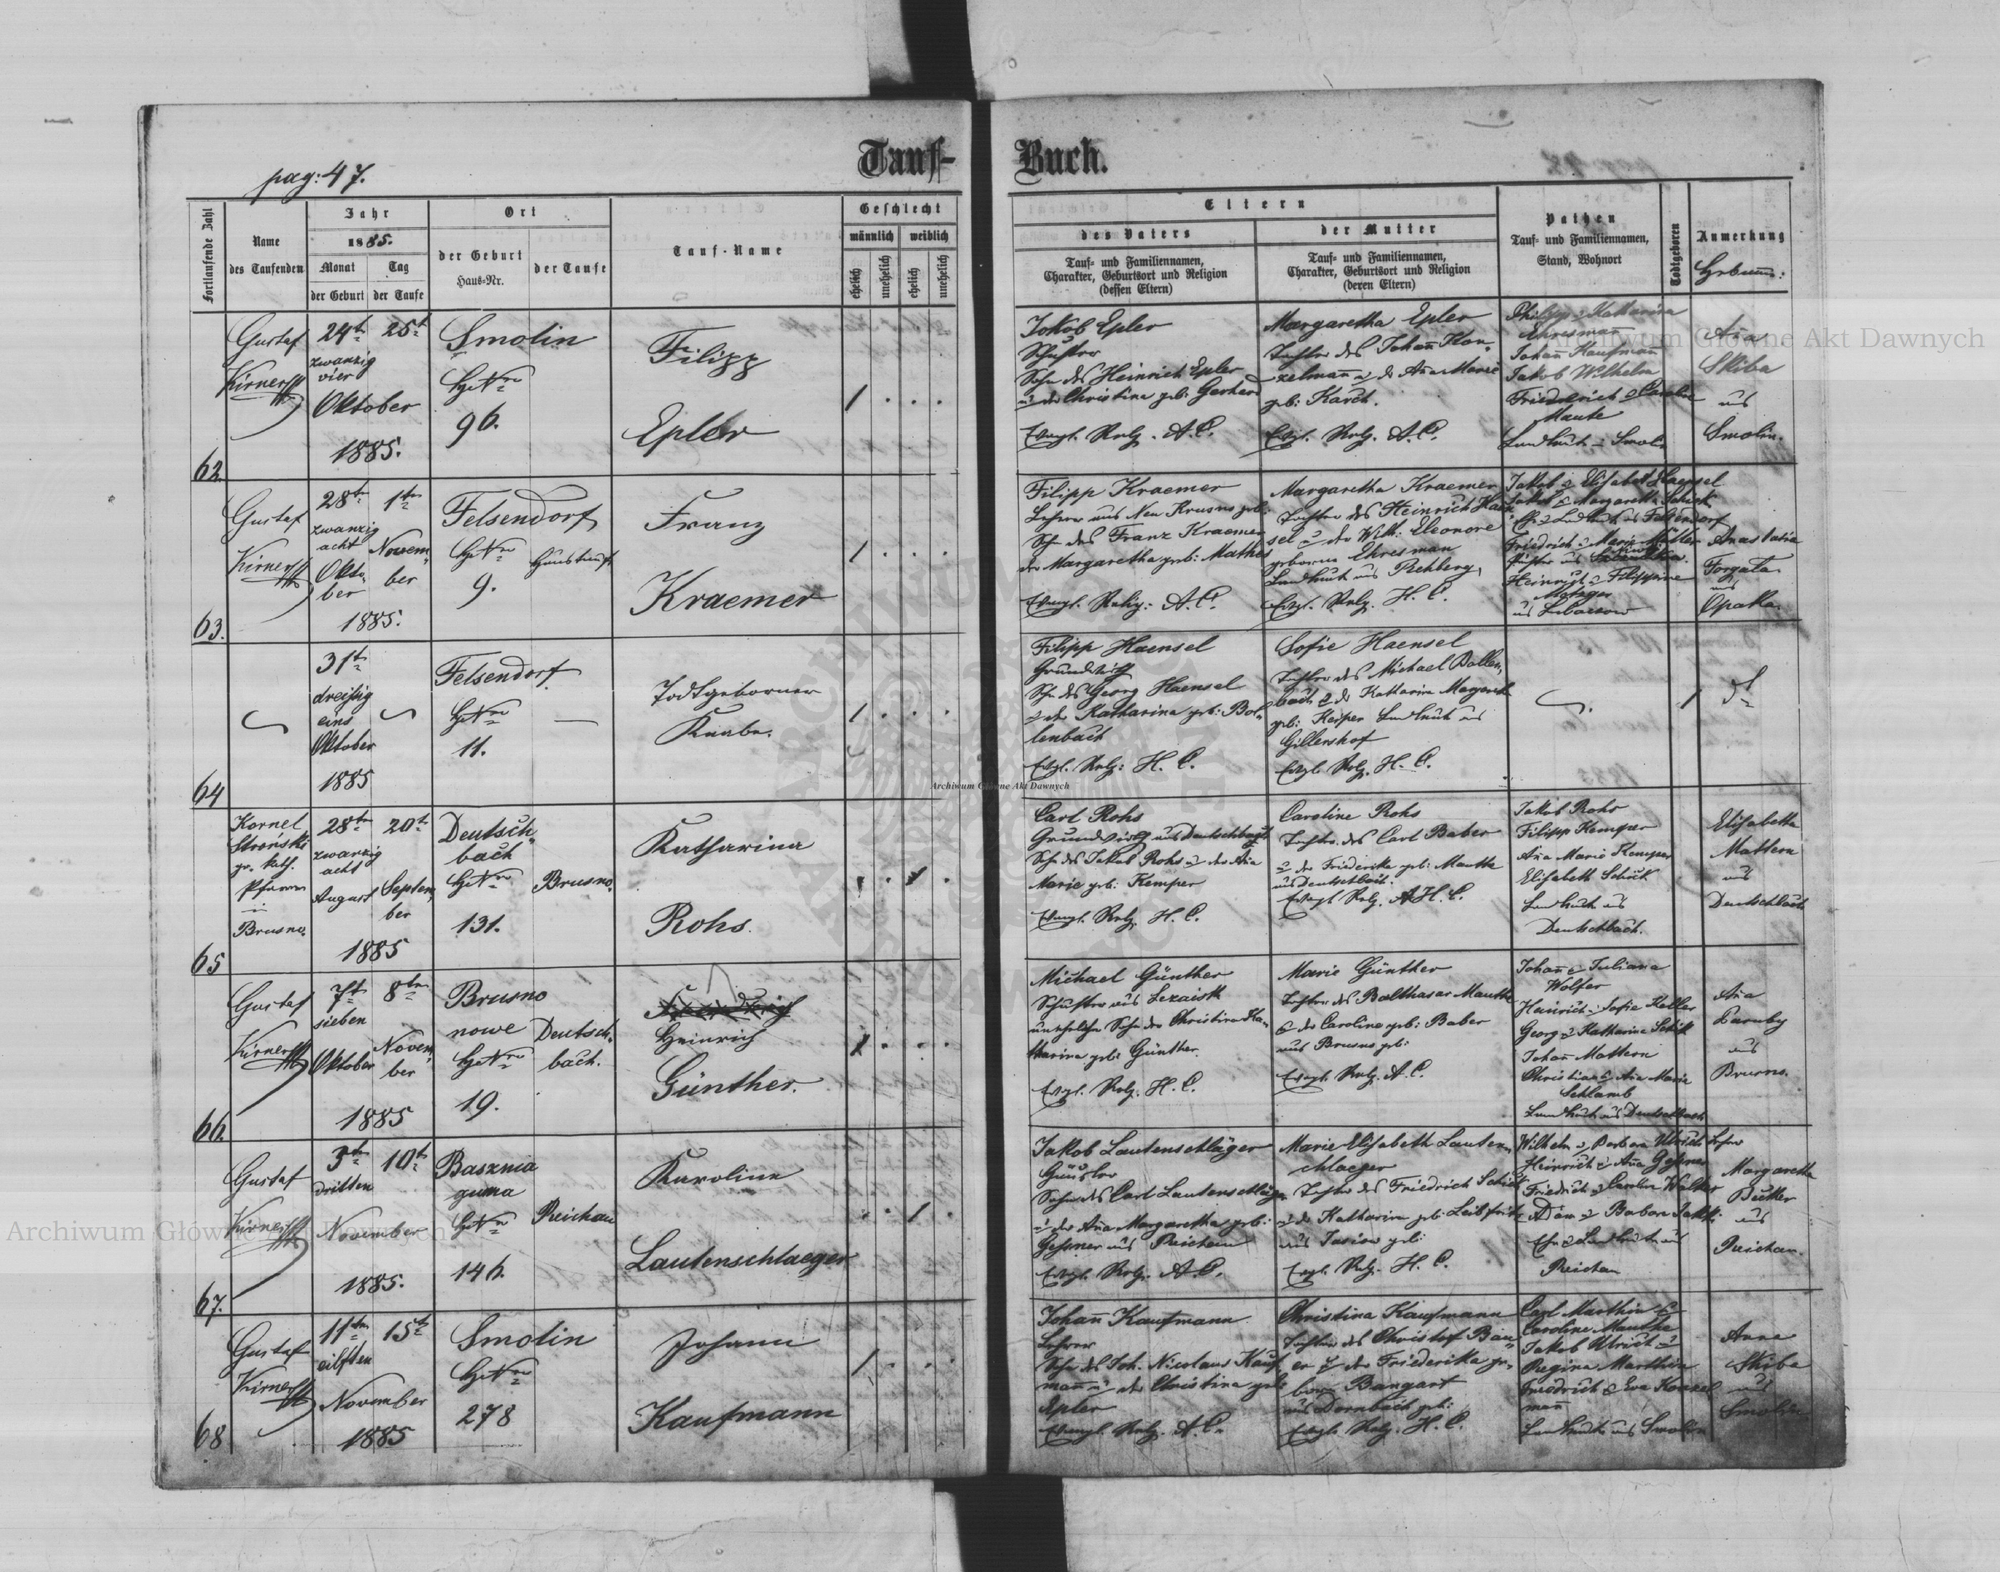 Tauf-
Buch.
pag: 47.
Fortlaufende Zahl
Name
des Taufenden
Jahr
1885.
Monat
Tag
der Geburt
der Taufe
Ort
der Geburt
Haus-Nr.
der Taufe
Tauf-Name
Geschlecht
männlich
weiblich
ehelich
unehelich
ehelich
unehelich
Eltern
des Vaters
Tauf- und Familiennamen,
Charakter, Geburtsort und Religion
(dessen Eltern)
der Mutter
Tauf- und Familiennamen,
Charakter, Geburtsort und Religion
(deren Eltern)
Pathen
Tauf- und Familiennamen,
Stand, Wohnort
Todtgeboren
Anmerkung
Hebamme:
62.
Gustaf
Kirner
24t 25t
zwanzig
vier
Oktober
1885.
Smolin
HsNro
96.
Filipp
Epler
1
Jokob Epler
Schuster
Sohn des Heinrich Epler
u der Christina geb: Gerhard
Evngl. Relg. A.C.
Margaretha Epler
Tochter des Johann Kon-
zelmann u. der Anna Marie
geb: Karch.
Evgl. Relg. A.C.
Philipp u Katharina
Ehresman
Johann Kaufman
Jakob Wilhelm
Friederich u Carolin
Manke
Landleute in Smolin
Ana
Skiba
aus
Smolin.
63.
Gustaf
Kirner
28t 1ten
zwanzig
acht
Oktober
November
1885.
Felsendorf
HsNro
9.
Haustaufe
Franz
Kraemer
1
Filipp Kraemer
Lehrer aus Neu Krusno geb:
Sohn des Franz Kraemer
der Margaretha geb: Mathes
Evngl. Relig: A.C.
Margaretha Kraemer
Tochter des Heinrich Haen-
sel u der Wilh: Eleonore
geborne Ehresman
Landleute aus Rehberg,
Evgl. Relg. H.C.
Jakob u Elisabet Haensel
Jakob u Margaretha Schick
Landleute aus Felsendorf
Friedrich u Marie Müller
Heinrich u Filippine
Metzger
aus Lubaczow
Anastasia
Forgata
aus
Opaka.
64
31t
dreißig
eins
Oktober
1885
Felsendorf
HsNro
11.
Todtgeborner
Knabe.
1
Filipp Haensel
Grundwirth
Sohn des Georg Haensel
u der Katharina geb: Bol-
lenbach
Evgl. Relg: H.C.
Sofie Haensel
Tochter des Michael Bollen-
bach u der Katharin Margareth
geb: Keiper Landleute aus
Gillershof
Evgl. Relg. H.C.
1
65
Kornel
Stroński
gr. kath.
Pfarrer
in
Brusno.
28t 20t
zwanzig
acht
August
September
1885
Deutsch-
bach
HsNro
131.
Brusno.
Katharina
Rohs.
1
Carl Rohs
Grundwirth aus Deutschbach
Sohn des Jakob Rohs u der Ana
Marie geb: Kemper
Evngl. Relg. H.C.
Caroline Rohs
Tochter des Carl Baber
u der Friederika geb: Mauthe
aus Deutschbach.
Evngl Relg. A H.C.
Jakob Rohs
Filipp Kemper
Ana Marie Kemper
Elisabeth Schick
Landleute aus
Deutschbach.
Elisabetta
Mattern
aus
Deutschbach
66.
Gustaf
Kirner
7t 8ten
sieben
Oktober
November
1885
Brusno
nowe
HsNro
19.
Deutsch-
bach.
Heinrich
Günther.
1
Michael Günther
Schuster aus Lezaisk
unehelicher Sohn der Christina Ka-
tharina geb: Günther.
Evgl. Relg: H.C.
Marie Günther
Tochter des Balthasar Mauthe
u der Caroline geb: Baber
aus Brusno geb:
Evngl. Relg. A.C.
Johann u Juliana
Wolfer
Heinrich u Sofie Keller
Georg u Katharina Schick
Johann Mattern
Christian u Ana Marie
Schlamb
Landleute aus Deutschbach
Ana
aus
Brusno.
67.
Gustaf
Kirner
3t 10t
dritten
November
1885.
Basznia
guma
HsNro
146.
Reichau
Karolina
Lautenschlaeger
1
Jakob Lautenschläger
Häusler
Sohn des Carl Lautenschläger
u der Ana Margaretha geb:
Gessner aus Reichau
Evngl. Relg: A.C.
Marie Elisabeth Lauten-
schlaeger
Tochter des Friedrich Schick
u der Katharin geb: Leibfritz
Evgl. Relg. H.C.
Wilhelm u Barbara Ulrich Lehrer
Heinrich u Ana Gessner
Friedrich u Carolin Walter
Adam u Barbara
Landleute aus
Reichau
Margaretha
aus
Reichau.
68
Gustaf
Kirner
11ten 15t
eilften
November
1885
Smolin
HsNro
278
Johann
Kaufmann
1
Johann Kaufmann
Lehrer
Sohn des Joh. Nicolaus Kauf-
mann u der Christina geb:
Epler
Evngl. Relg. A.C.
Christina Kaufmann
Tochter des Christof Bau-
er u der Friederika ge-
born Bangart
aus Dornbach geb:
Evngl. Relg. H.C.
Carl Marthin u
Caroline Mauthe
Jakob Ulrich u
Regina Marthin
Friedrich u Eva Konzel
mann
Landleute aus Smolin
Anna
Skiba
aus
Smolin
Archiwum Główne Akt Dawnych